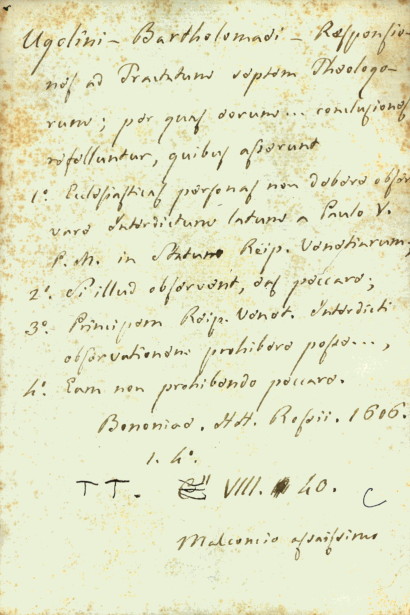 Ugolini - Bartholomaei - Responsio-
nes ad Tractatum septem Theologo-
rum; per quas eorum... conclusiones
refelluntur, quibus asserunt
1.º Ecclesiasticas personas non debere obser
vare Interdictum latum a Paulo V.
P. M. in Statum Reip. Venetiarum;
2.º Si illud observent, eas peccare;
3.º Principem Reip. Venet. Interdicti
observationem prohibere posse...,
4.º Eam non prohibendo peccare.
Bononiae. HH. Rossii. 1606.
1. 4.º
TT. VIII. 40. C
Malconcio assaissimo